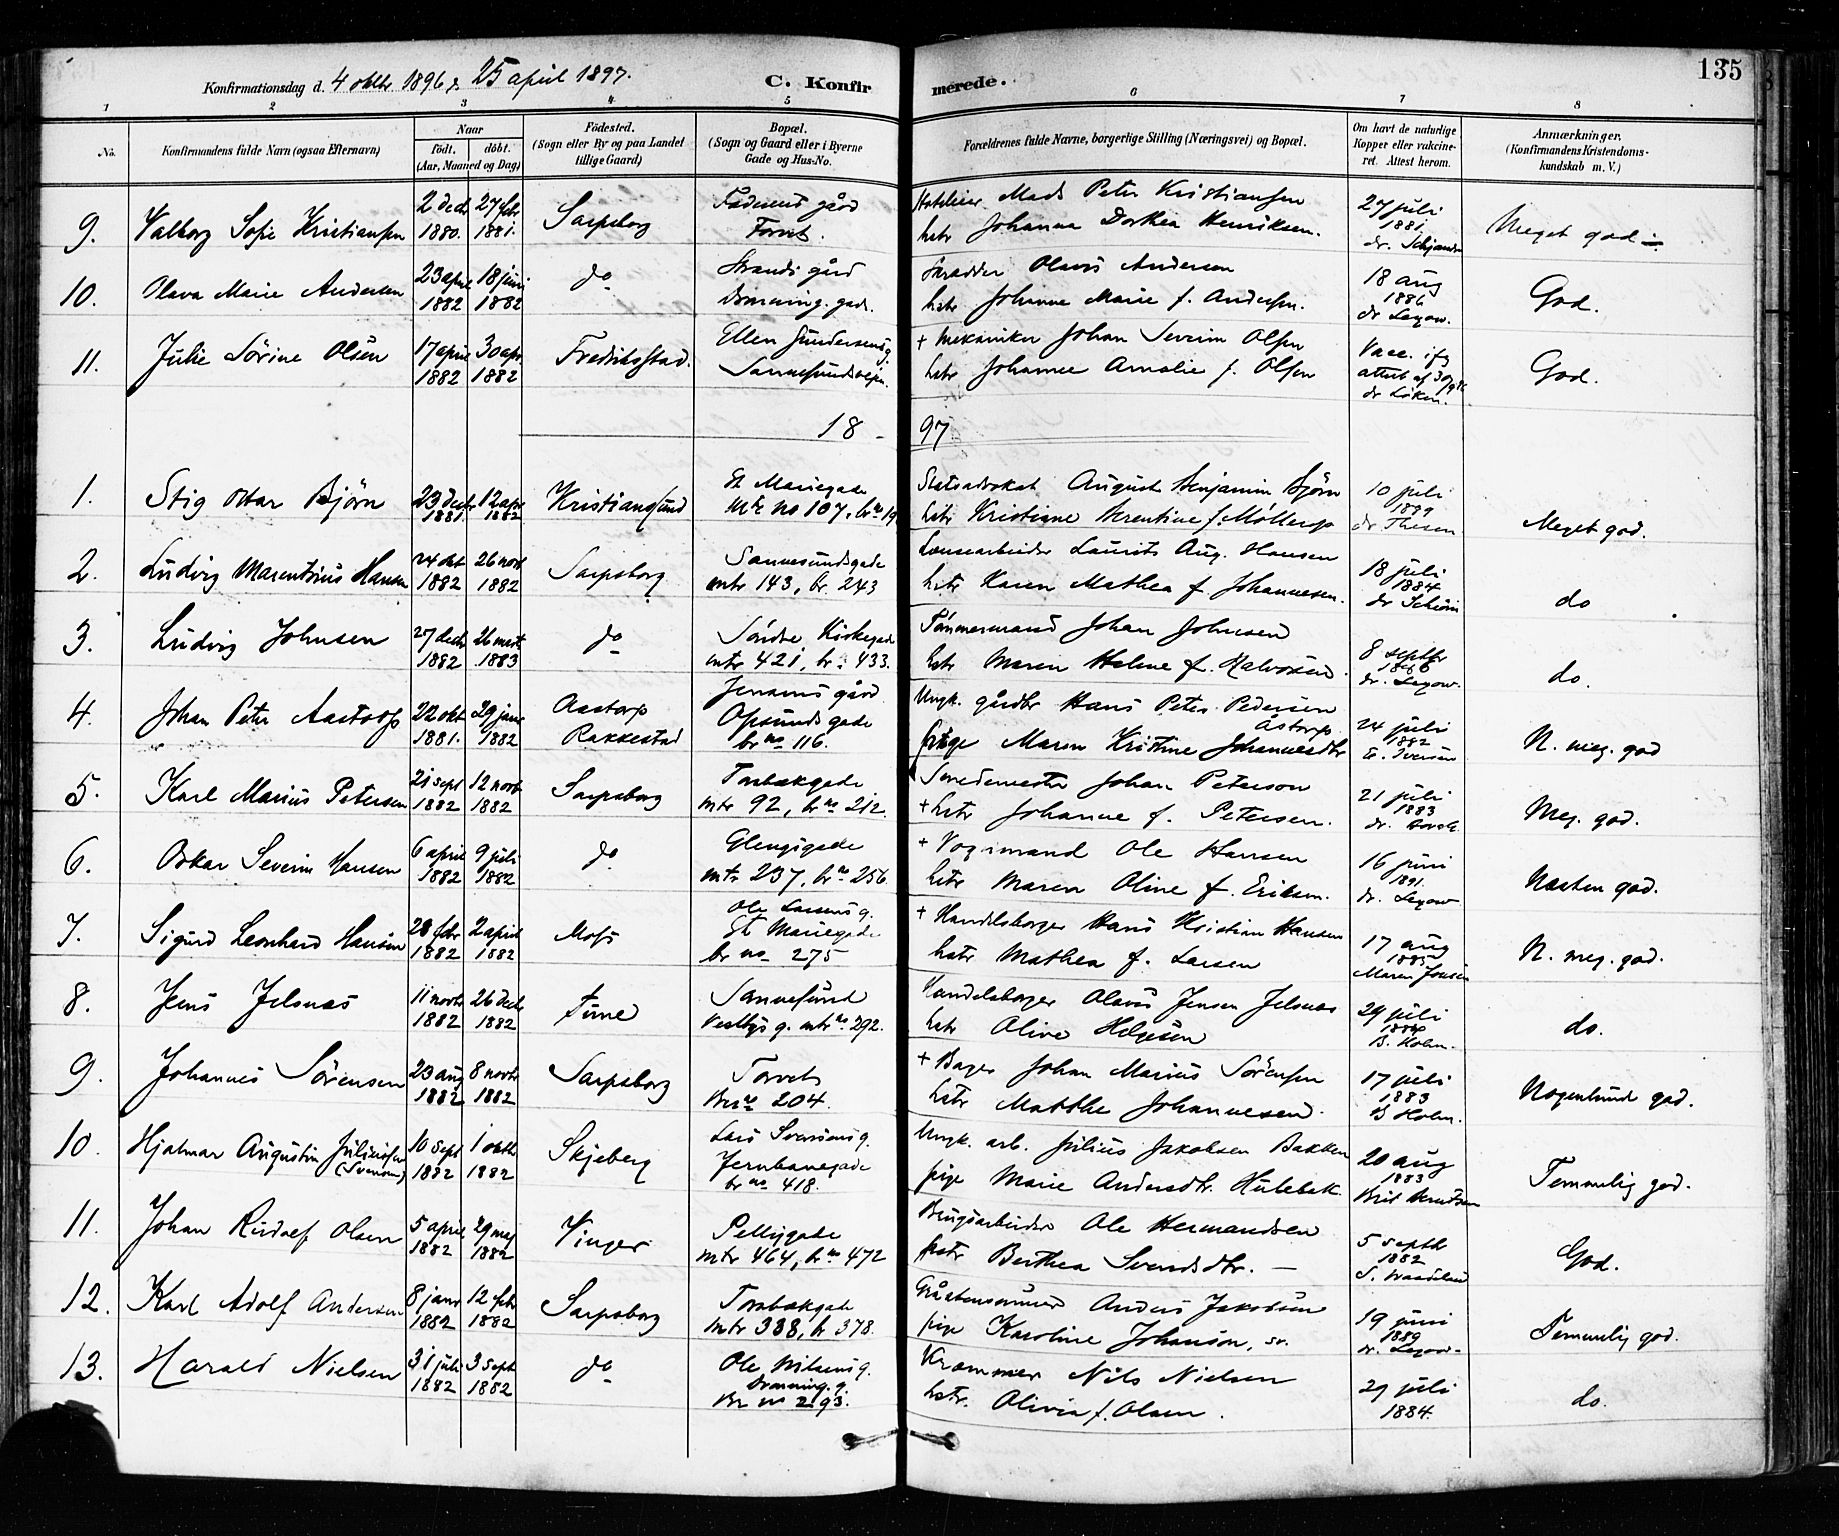 Konfirmationsdag d. 4 oktbr 1896 & 25 april 1897.
C. Konfirmerede.
135
1 2 3 4 5 6 7 8
No.
Konfirmandens fulde Navn (ogsaa Efternavn)
Naar
födt. döbt.
(Aar, Maaned og Dag)
Födested.
(Sogn eller By og paa Landet
tillige Gaard)
Bopæl.
(Sogn og Gaard eller i Byerne
Gade og Hus-No.
Forældrenes fulde Navne, borgerlige Stilling (Næringsvei) og Bopæl.
Om havt de naturlige
Kopper eller vakcine-
ret. Attest herom.
Anmærkninger.
(Konfirmandens Kristendoms-
kundskab m. V.)
9. Valborg Sofie Kristiansen
2 decbr 1880. 27 febr 1881.
Sarpsborg
gård
Torvet.
Mads Peter Kristiansen
hstr Johanna Dorthea Henriksen.
27 juli
1881
dr.
Meget god
10. Olava Marie Andersen
23 april 1882 18 juni 1882
do
Strands gård
Dronning. gade.
Skrædder Olavs Andersen
hstr Johanne Marie f. Andersen.
18 aug
1886
dr Lexow.
God.
11. Julie Sörine Olsen
17 april 1882 30 apr. 1882
Fredriksstad.
Ellen Gundersens g.
Sannesundsvejen.
+ Mekaniker Johan Severin Olsen
hstr Johanne Amalie f. Olsen
Vacc. ifg
attest af 30/9 86
dr Löken.
God.
18 - 97
1. Stig Ottar Björn
23 decbr 1881. 12 apr 1882
Kristianssund
St Mariegade
Mtr no 107, br no 19
Statsadvokat August Benjamin Björn
hstr Kristiane Berentine f. Möllerop
10 juli
1899
dr Thesen
Meget god.
2. Ludvig Marentius Hansen
24 okt 1882 26 novb 1882
Sarpsborg
Sannesundsgade
mtr 143, br. 243
Lensearbeider Laurits Aug. Hansen
hstr Karen Mathea f. Johannesen.
18 juli
1884
dr Schiörn
do
3. Ludvig Johnsen
27 decbr 1882 26 marts 1883
do
Söndre Kirkegade
mtr 421, br. 433.
Tömmermand Johan Johnsen
hstr Maren Helene f. Halvorsen.
8 septbr
1886
dr. Lexow.
do.
4. Johan Peter Aastorp
22 okt 1881. 29 janr 1882
Aastorp
Rakkestad
Jensens gård
Opsunds gade
br no 116.
Ungk. gårdbr Hans Peter Pedersen
Åstorp
pige Maren Kristine Johannesdtr
24 juli
1882
E. Iversen
N. meg. god
5. Karl Marius Petersen
21 sept 1882 12 novb 1882
Sarpsborg
Torsbækgade
mtr 92, br no 212.
Smedemester Johan Peterson
+ hstr Johanne f. Petersen.
21 juli
1883
dr.
Meg. god.
6. Oskar Severin Hansen
6 april 1882 9 juli 1882
do
Glengsgade
mtr 237, br no 256.
+ Vognmand Ole Hansen
hstr Maren Oline f. Eriksen.
16 juni
1891.
dr. Lexow
Næsten god.
7. Sigurd Leonhard Hansen
28 febr 1882 2 april 1882
Moss
Ole Larsens g.
St Mariegade
br no 275
+ Handelsborger Hans Kristian Hansen
hstr Mathea f. Larsen
17 aug
1885
Maren Jensen
N. meg. god.
8. Jens Jelsnæs
11 novb 1882 26 decbr 1882
Tune
Sannesund
Vestbys g. mtr no 292.
Handelsborger Olavus Jensen Jelsnæs
hstr Olive Helgesen
29 juli
1884
B. Holm.
do.
9. Johannes Sörensen
23 aug 1882 8 novb 1882
Sarpsborg
Torvet
Br no 204.
+ Bager Johan Marius Sörensen
hstr Matthe Johannesen.
17 juli
1883
B Holm.
Nogenlunde god.
10. Hjalmar Augustin Juliussen
(Svensen)
10 sept 1882 1 oktb 1882
Skjeberg
Lars Svensens g.
Jernbanegade
br no 418.
Ungk. arb. Julius Jakobsen Bakken
pige Marie Andersdtr. Hulebak.
20 aug
1883
Temmelig god.
11. Johan Rudolf Olsen
5 april 1882 29 maj 1882
Vinger
Pellygade
mtr 464, br no 472
Brugsarbeider Ole Hermandsen
hstr Berthea Svendsdtr.
5 septb
1882
God.
12. Karl Adolf Andersen
8 janr 1882 12 febr 1882
Sarpsborg
Torsbækgade
mtr 338, br 378.
Anders Jakobsen
pige Karoline Johanson, sv.
19 juni
1889
dr. Lexow.
Temmelig god.
13. Harald Nielsen
31 juli 1882 3 sept 1882
do
Ole Nilsens g.
Dronning. g.
Br no 293.
Kræmmer Nils Nielsen
hstr. Olivia f. Olsen.
29 juli
1884.
do.